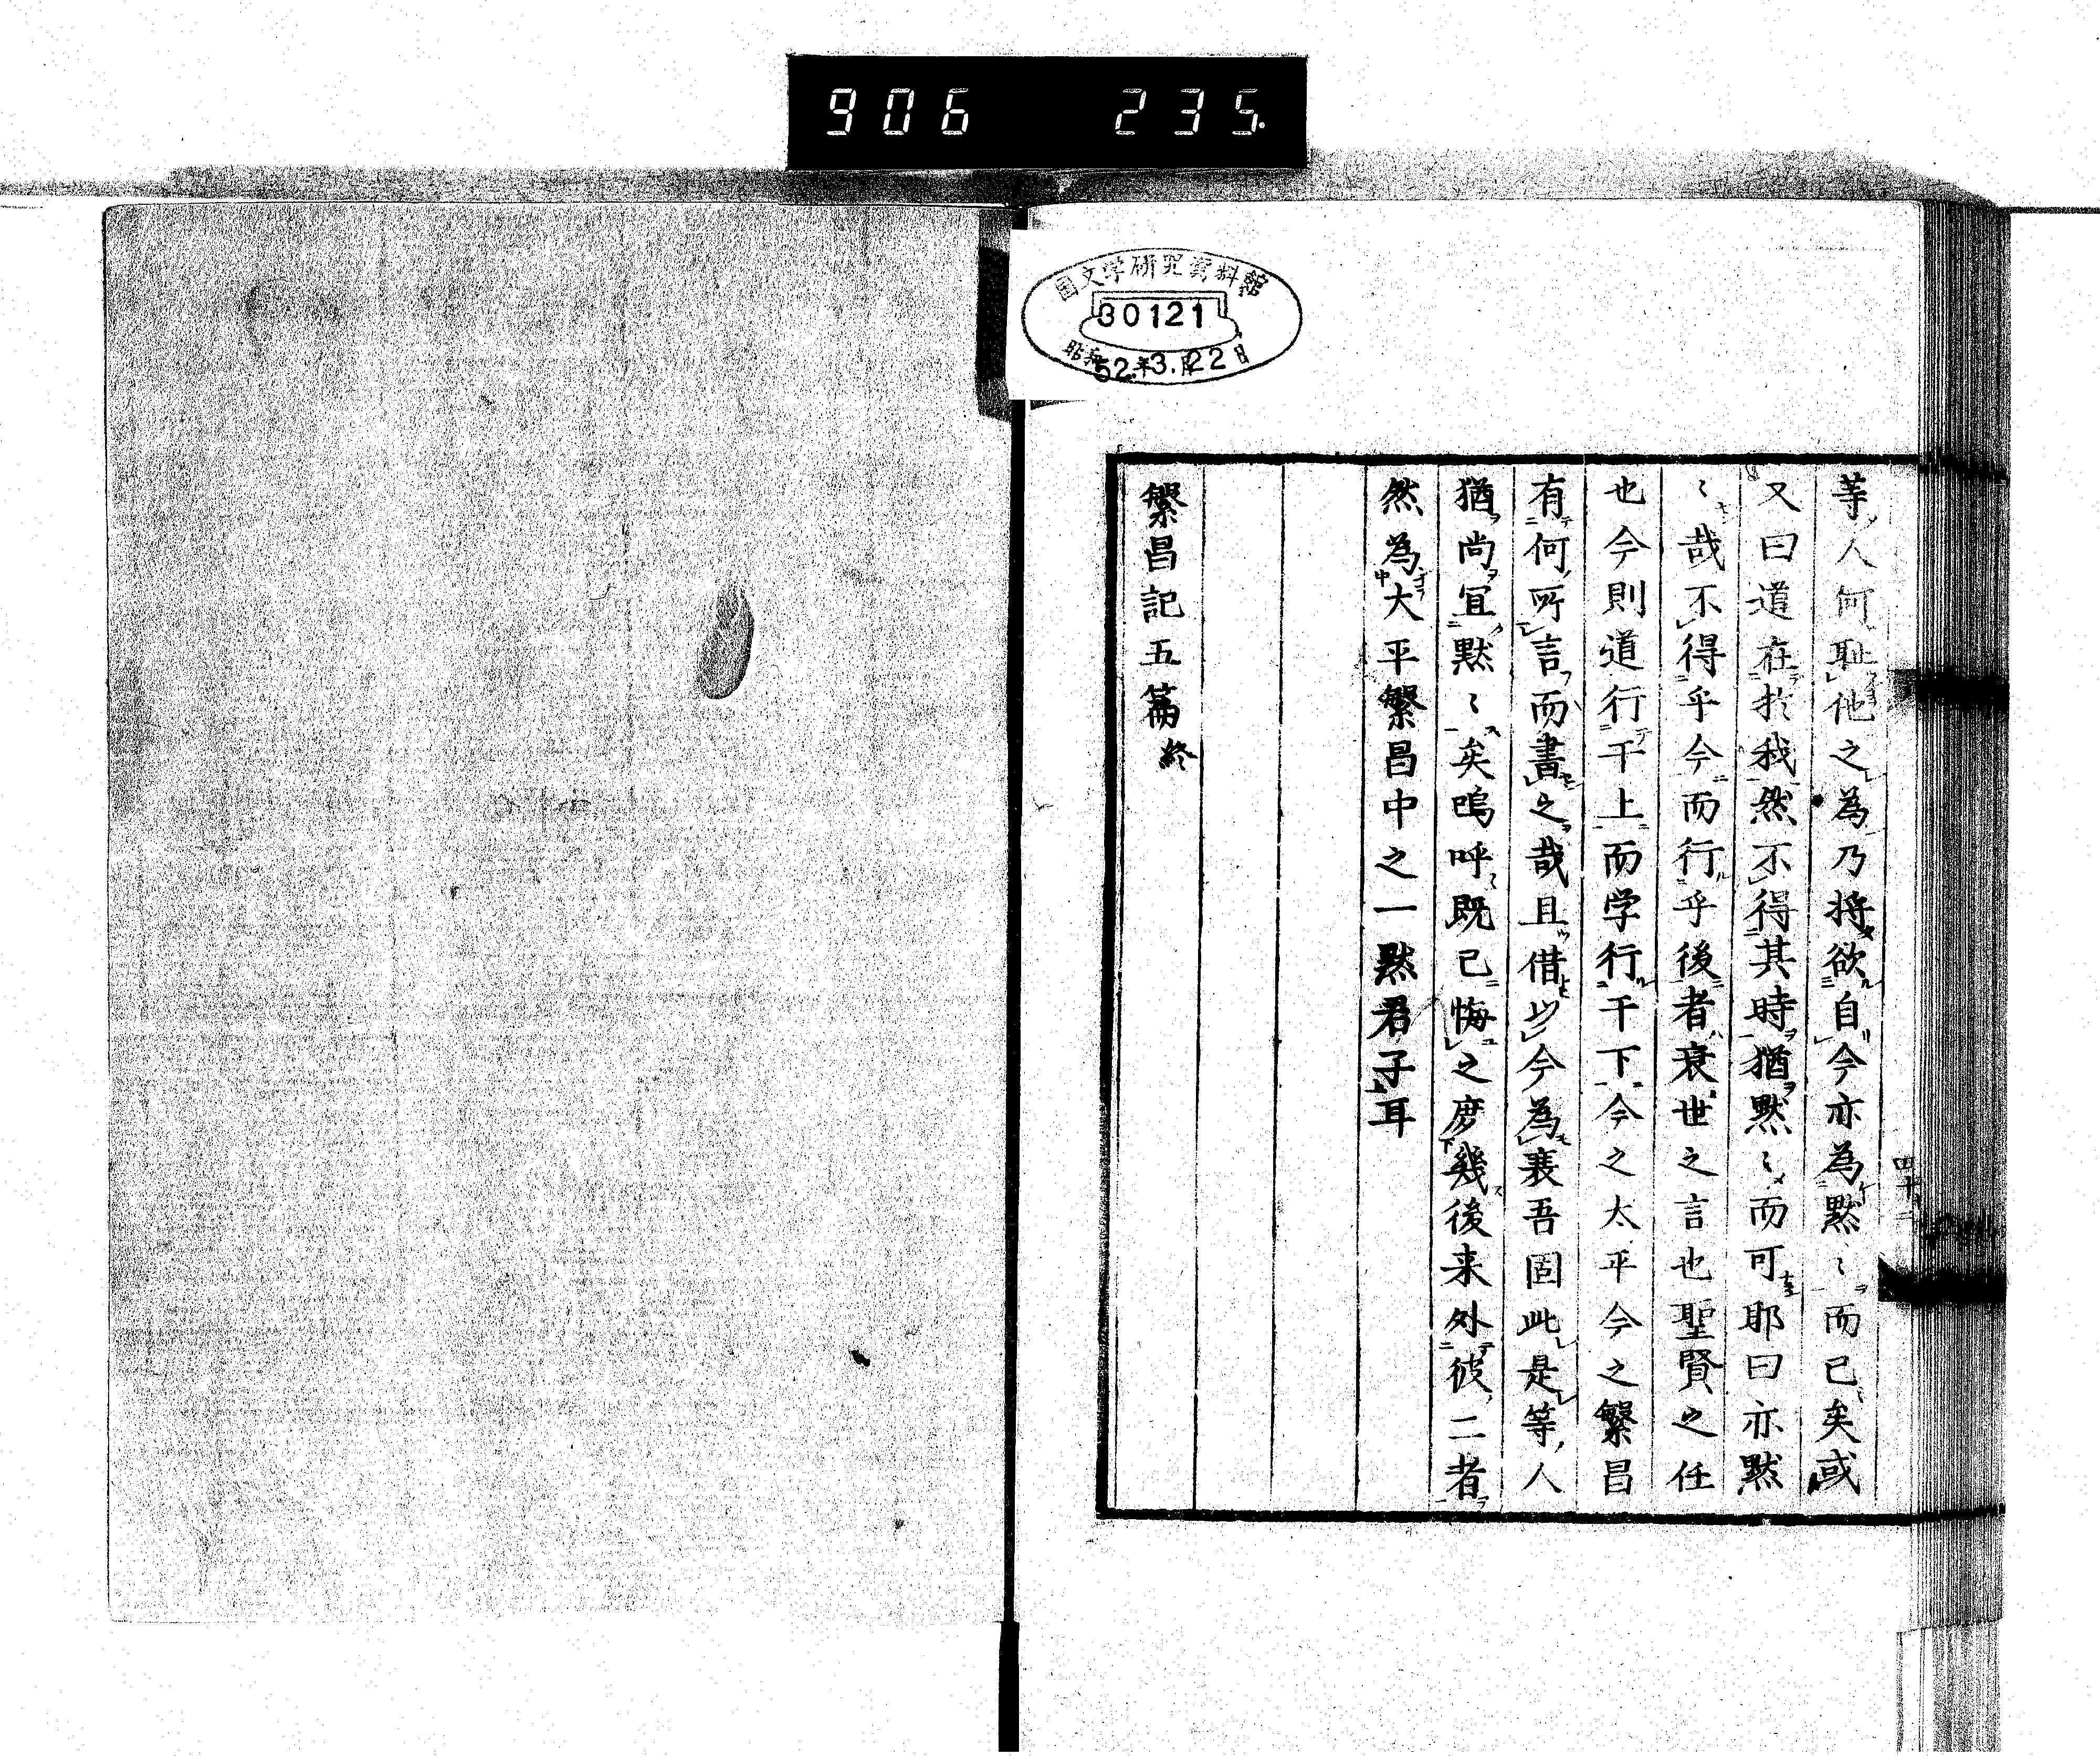 906 235.
国文学研究資料館
30121
昭和52年3月22日
等人何恥他之為乃将欲自今亦為黙〻而已矣或
又曰道在於我然不得其時猶黙〻而可耶曰亦黙
〻哉不得乎今而行乎後者衰世之言也聖賢之任
也今則道行干上而学行干下今之太平今之繁昌
有何所言而書之哉且借以今為衰吾固此是等人
猶尚宜黙〻矣嗚呼既已悔之庶幾後来外彼二者
然為大平繁昌中之一黙君子耳
繁昌記五篇終
四十二